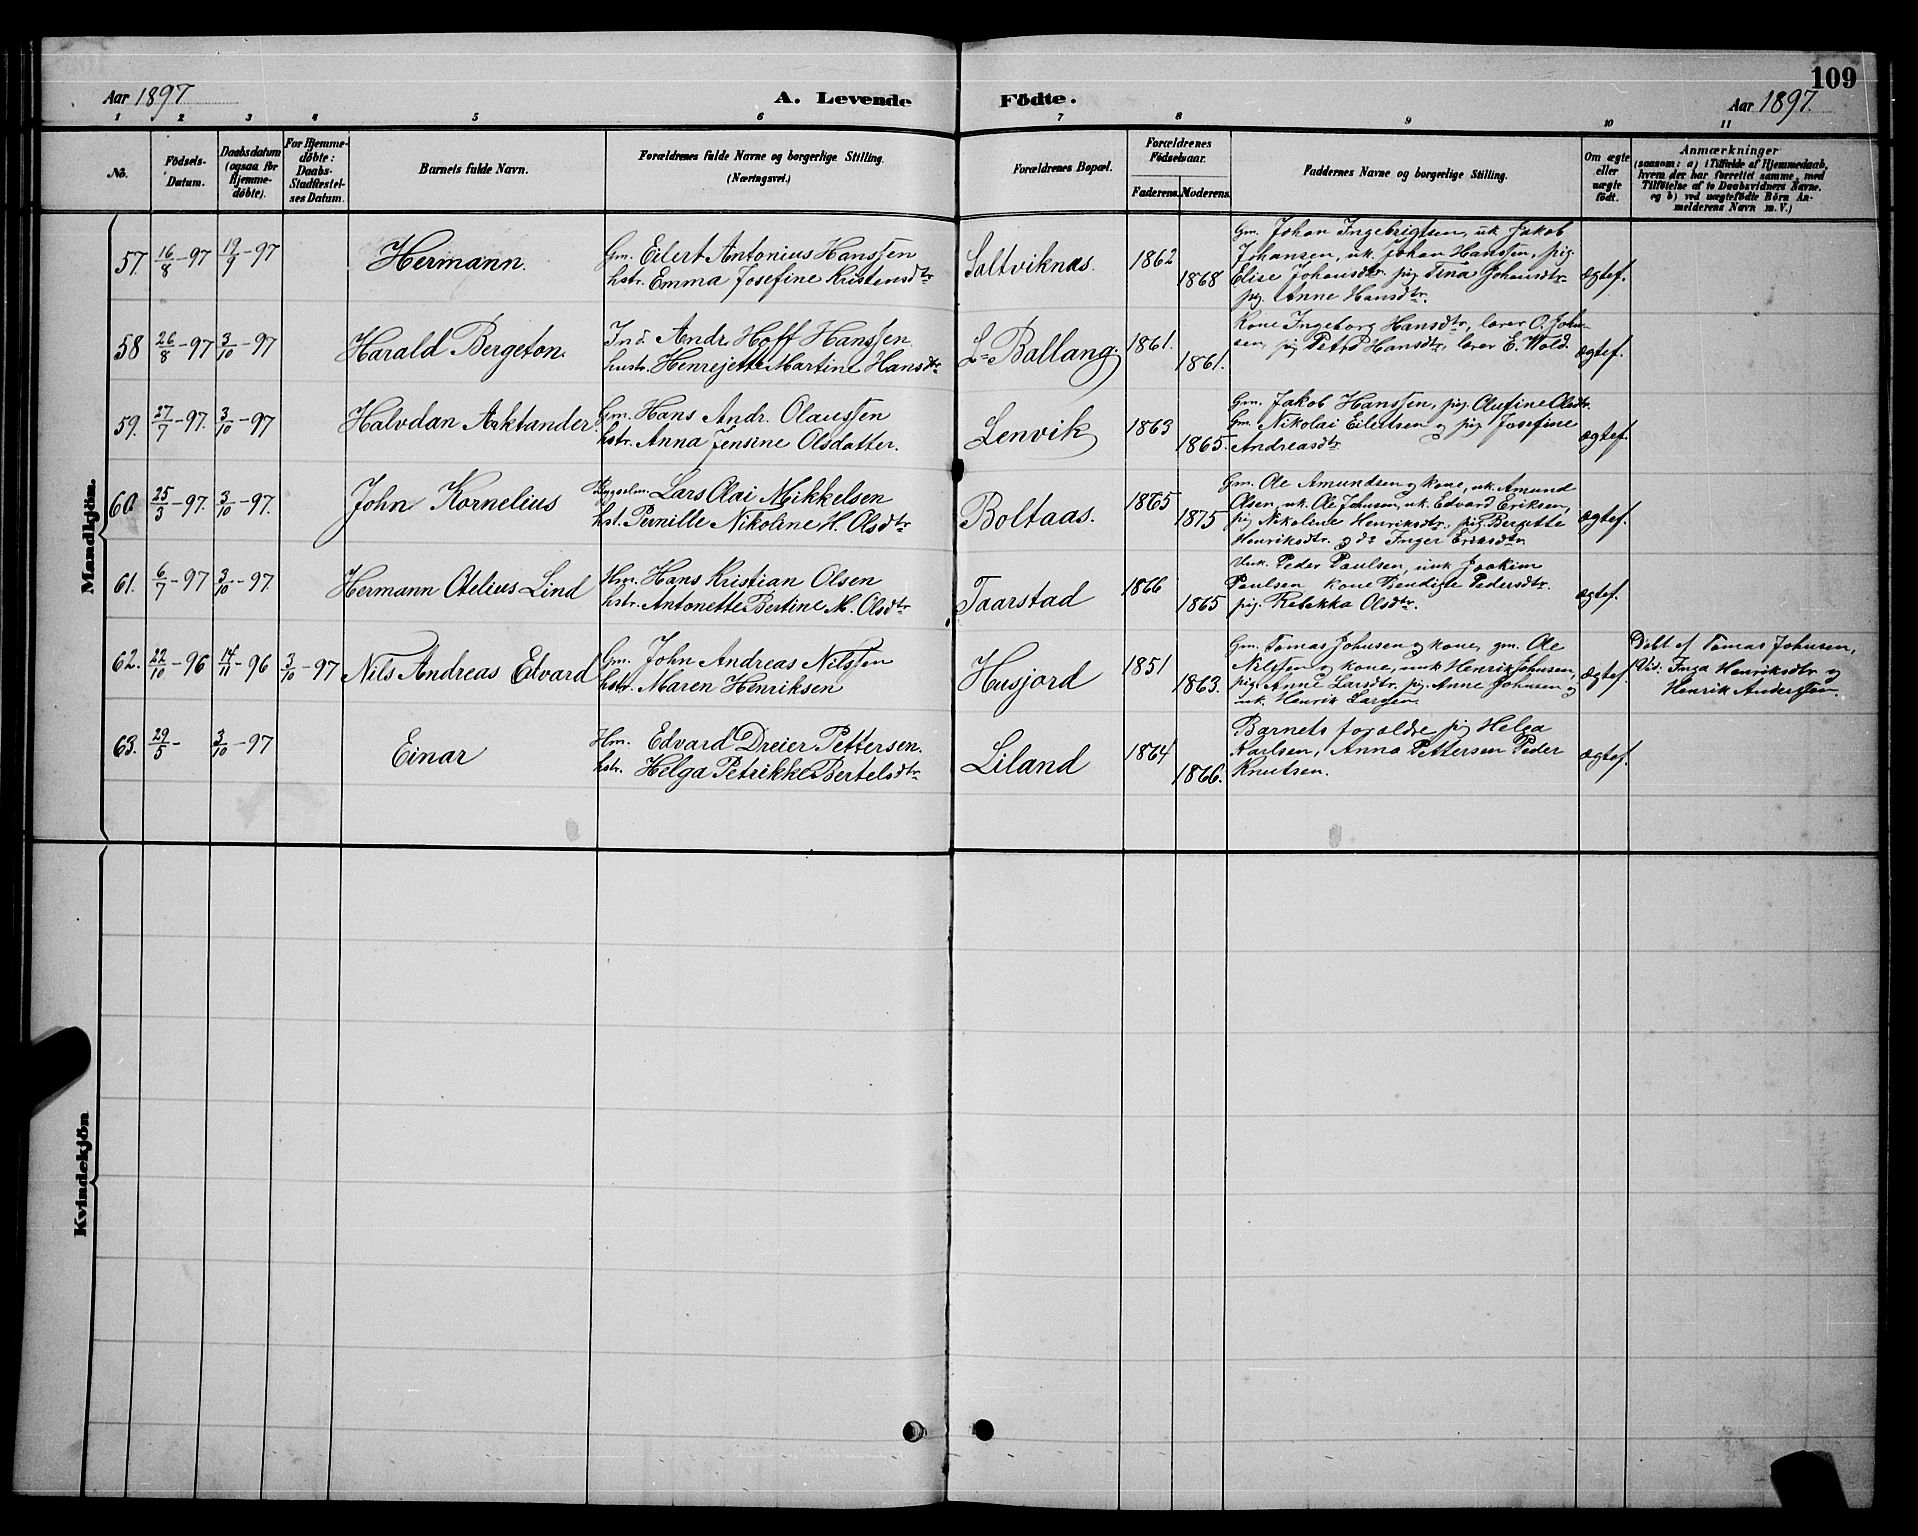 109
Aar 1897 A. Levende Födte. Aar 1897.
1 2 3 4 5 6 7 8 9 10 11
No.
Födsels-
Datum.
Daabsdatum
(ogsaa for
Hjemme-
döbte).
For Hjemme-
döbte:
Daabs-
Stadfæstel-
ses Datum.
Barnets fulde Navn.
Forældrenes fulde Navne og borgerlige Stilling.
(Næringsvei.)
Forældrenes Bopæl.
Forældrenes
Födselsaar.
Faderens. Moderens.
Faddernes Navne og borgerlige Stilling.
Om ægte
eller
uægte
födt.
Anmærkninger
(saasom: a) i Tilfælde af Hjemmedaab,
hvem der har forrettet samme, med
Tilföielse af to Daabsvidners Navne.
og b) ved uægtefödte Börn An-
melderens Navn m. V.)
Mandkjön.
57. 16/8-97 19/9-97 Hermann.
Gm. Eilert Antonius Hanssen
hstr. Emma Josefine Kristensdtr
Saltviknæs. 1862
1868
Gm. Johan Ingebrigtsen, uk. Jakob
Johansen, uk. Johan Hanssen, pig.
Elise Johansdtr. pig. Tina Johansdtr.
pig. Anne Hansdtr.
Ægtef.
58 26/8-97 3/10-97 Harald Bergeton.
Ind. Andr. Hoff Hanssen.
hustr. Henrejette Martine Hansdtr
L. Ballang. 1861.
1861.
Kone Ingeborg Hansdtr, lærer O. John-
sen, pig Petra Hansdtr. lærer E. Wold.
Ægtef.
59. 27/7-97. 3/10-97 Halvdan Arktander.
Gm. Hans Andr. Olaussen
hstr. Anna Jensine Olsdatter.
Lenvik 1863
1865.
Gm. Jakob Hanssen, pig. Olufine Olsdtr.
Gm. Nikolai Eilertsen og pig Josefine
Andreasdtr.
Ægtef.
60 25/3-97. 3/10-97. John Kornelius
Bygselm. Lars Olai Mikkelsen
hst. Pernille Nikoline H. Olsdtr
Boltaas. 1865
1875
Gm. Ole Amundsen og kone, uk. Amund
Olsen, uk. Ole Johnsen, uk. Edvard Eriksen,
pig Nikoline Henriksdtr. pig. Bergitte
Henriksdtr. og do Inger Eriksdtr.
Ægtef.
61. 6/7-97 3/10-97. Hermann Otelius Lind
Hm. Hans Kristian Olsen
hstr. Antonette Bertine M. Olsdtr
Taarstad 1866
1865
Unk. Peder Paulsen, unk Joakim
Paulsen kone Bendigte Pedersdtr.
pig. Rebekka Olsdtr.
Ægtef.
62. 22/10-96 14/11-96 3/10-97 Nils Andreas Edvard
Gm. John Andreas Nilssen
hstr. Maren Henriksen
Husjord 1851
1863.
Gm. Tomas Johnsen og kone, gm. Ole
Nilssen og kone, unk Henrik Johnsen,
pig. Anne Larsdtr. pig. Anne Johnsen og
uk. Henrik Larssen.
Ægtef.
Döbt af Tomas Johnsen,
Vid. Inga Henriksdtr og
Henrik Anderssen.
63. 29/5- 3/10-97 Einar
Hm. Edvard Dreier Pettersen.
hstr. Helga Petrikke Bertelsdtr
Liland 1864
1866.
Barnets forældre pig Helga
Karlsen, Anna Pettersen Peder
Knutsen.
Ægtef.
Kvindekjön